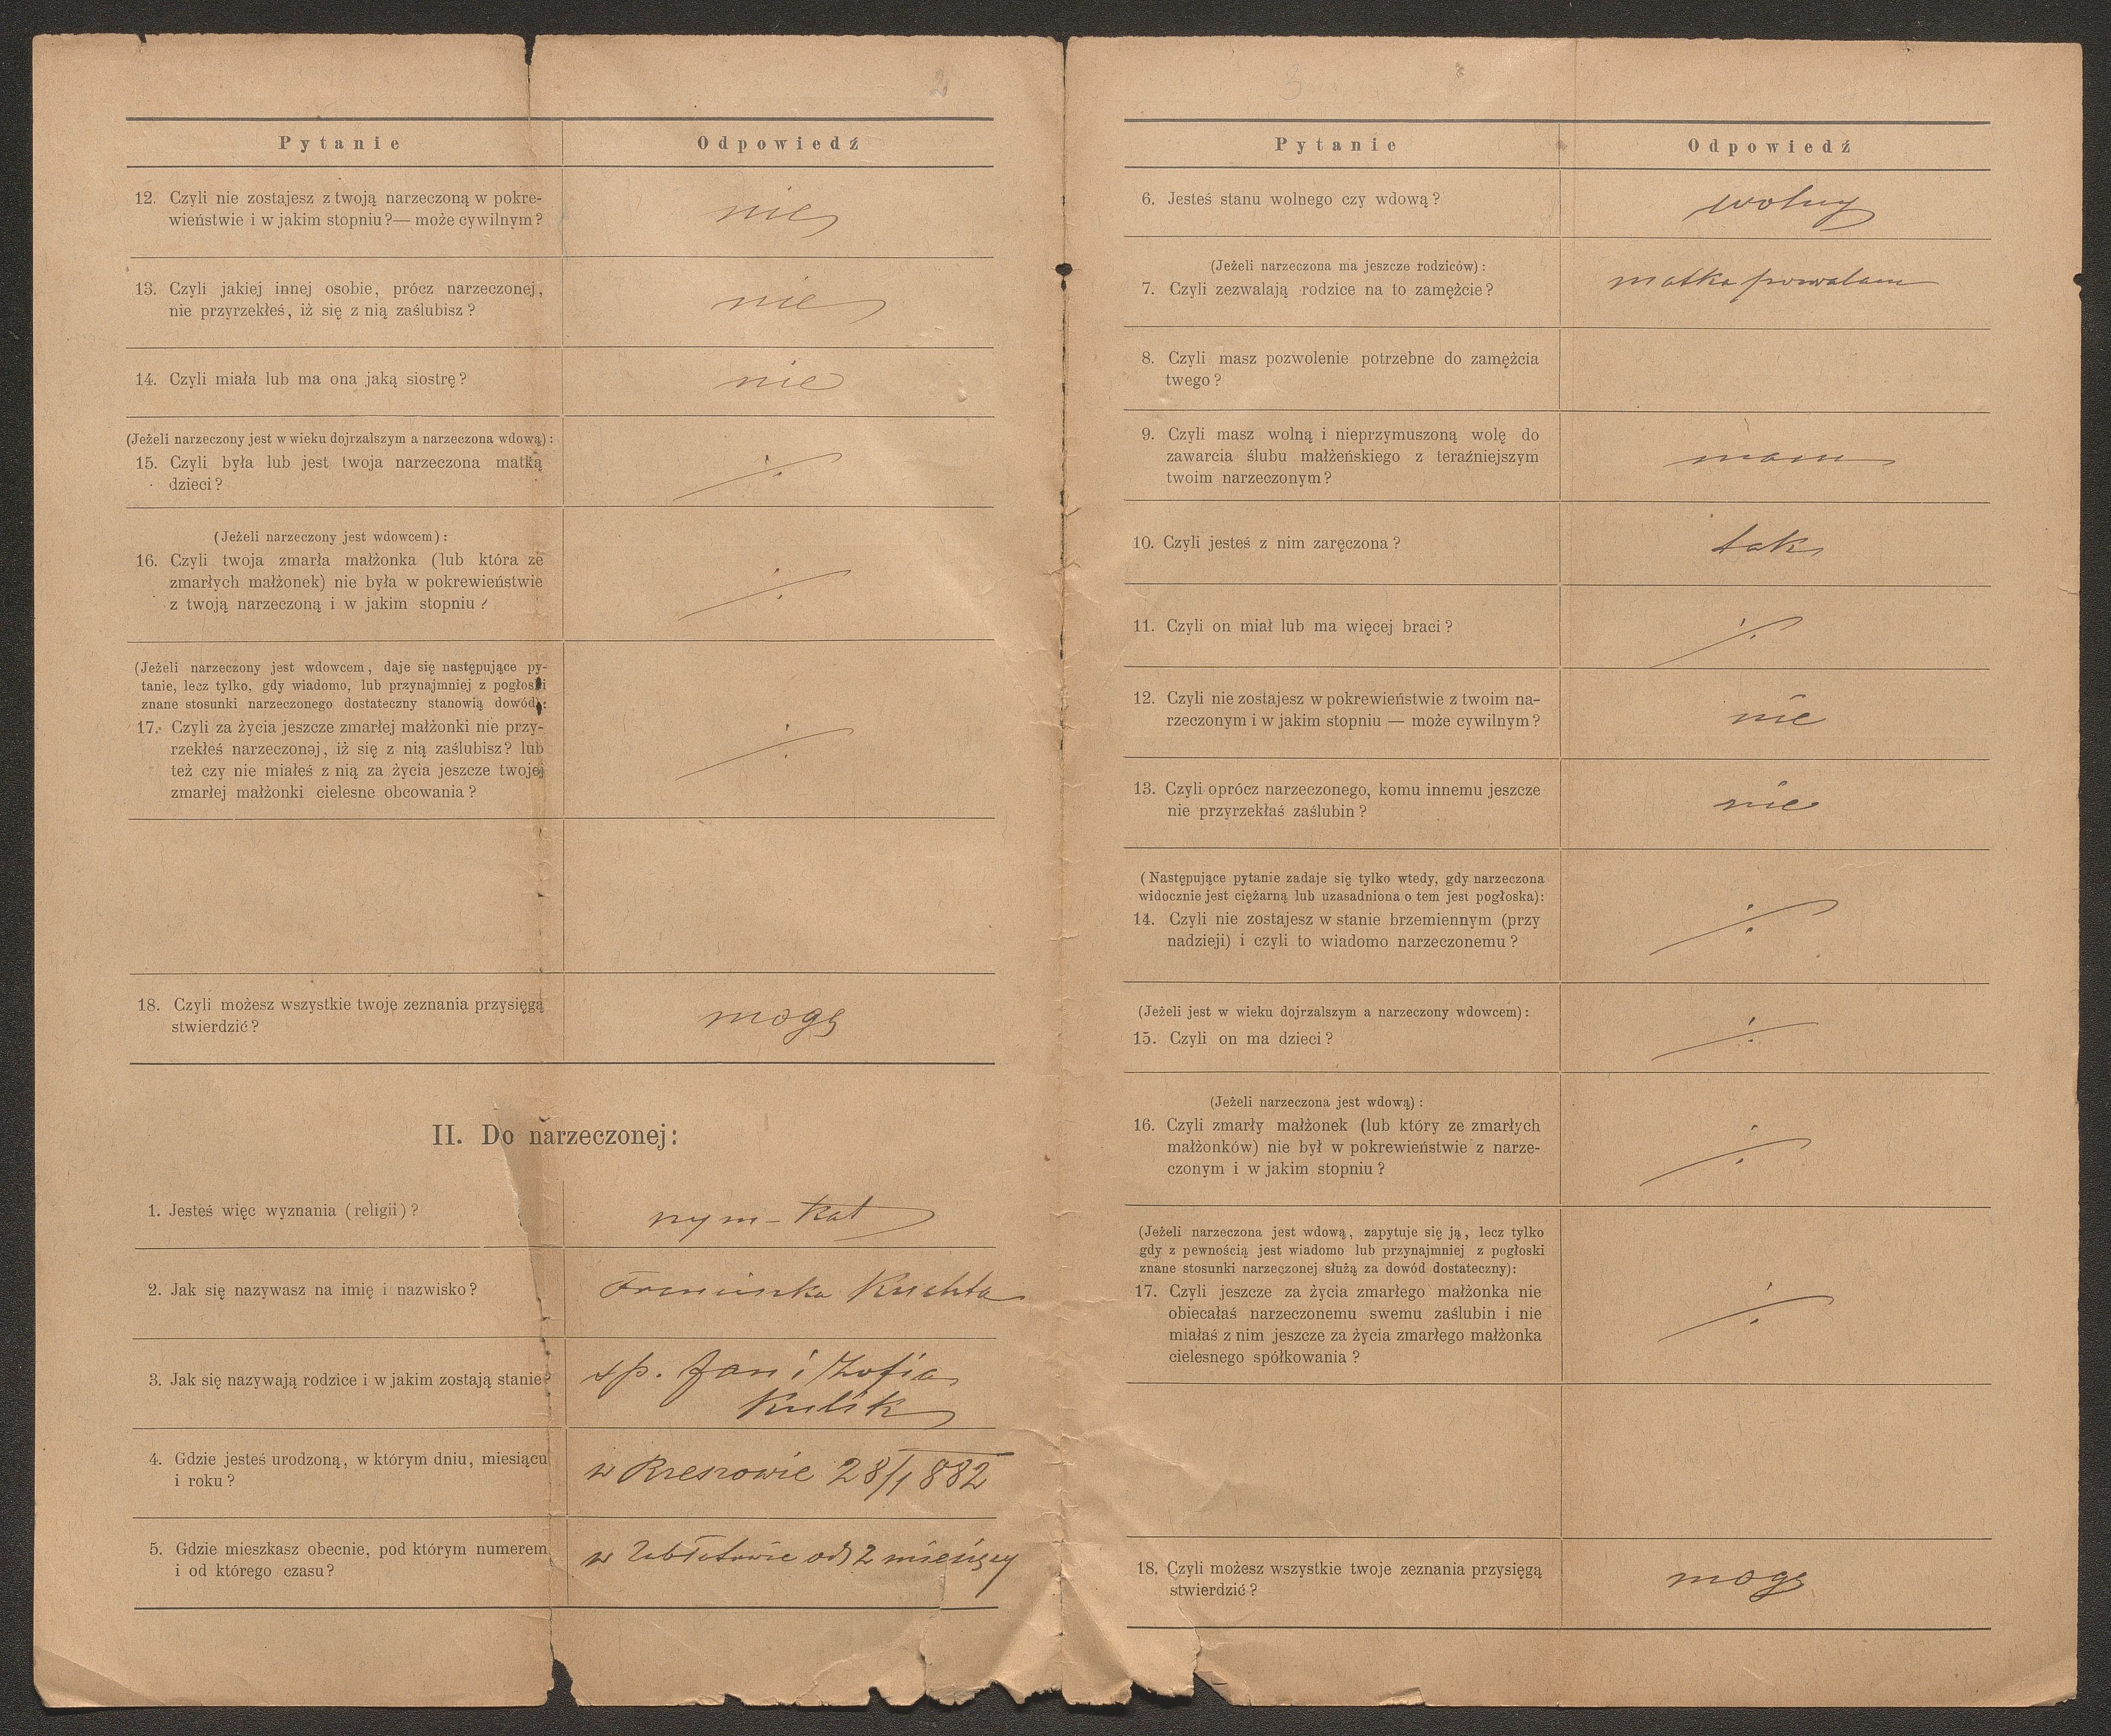 2
Pytanie
Odpowiedź
12. Czyli nie zostajesz z twoją narzeczoną w pokre-
wieństwie i w jakim stopniu?— może cywilnym?
nie
13. Czyli jakiej innej osobie, prócz narzeczonej,
nie przyrzekłeś, iż się z nią zaślubisz?
nie
14. Czyli miała lub ma ona jaką siostrę?
nie
(Jeżeli narzeczony jest w wieku dojrzalszym a narzeczona wdową):
15. Czyli była lub jest twoja narzeczona matką
dzieci?
(Jeżeli narzeczony jest wdowcem):
16. Czyli twoja zmarła małżonka (lub która ze
zmarłych małżonek) nie była w pokrewieństwie
z twoją narzeczoną i w jakim stopniu?
(Jeżeli narzeczony jest wdowcem, daje się następujące py-
tanie, lecz tylko, gdy wiadomo, lub przynajmniej z pogłoski
znane stosunki narzeczonego dostateczny stanowią dowód):
17. Czyli za życia jeszcze zmarłej małżonki nie przy-
rzekłeś narzeczonej, iż się z nią zaślubisz? lub
też czy nie miałeś z nią za życia jeszcze twojej
zmarłej małżonki cielesne obcowania?
18. Czyli możesz wszystkie twoje zeznania przysięgą
stwierdzić?
mogę
II. Do narzeczonej:
1. Jesteś więc wyznania (religii)?
rzym-kat
2. Jak się nazywasz na imię i nazwisko?
Kuchta
3. Jak się nazywają rodzice i w jakim zostają stanie?
sp. Jan i Zofia
Kulik
4. Gdzie jesteś urodzoną, w którym dniu, miesiącu
i roku?
w Rzeszowie 28/1 882
5. Gdzie mieszkasz obecnie, pod którym numerem
i od którego czasu?
w Zabłotowie od 2 miesięcy
3
Pytanie
Odpowiedź
6. Jesteś stanu wolnego czy wdową?
wolny
(Jeżeli narzeczona ma jeszcze rodziców):
7. Czyli zezwalają rodzice na to zamężcie?
matka pozwalam
8. Czyli masz pozwolenie potrzebne do zamężcia
twego?
9. Czyli masz wolną i nieprzymuszoną wolę do
zawarcia ślubu małżeńskiego z teraźniejszym
twoim narzeczonym?
mam
10. Czyli jesteś z nim zaręczona?
tak
11. Czyli on miał lub ma więcej braci?
12. Czyli nie zostajesz w pokrewieństwie z twoim na-
rzeczonym i w jakim stopniu — może cywilnym?
nie
13. Czyli oprócz narzeczonego, komu innemu jeszcze
nie przyrzekłaś zaślubin?
nie
(Następujące pytanie zadaje się tylko wtedy, gdy narzeczona
widocznie jest ciężarną lub uzasadniona o tem jest pogłoska):
14. Czyli nie zostajesz w stanie brzemiennym (przy
nadzieji) i czyli to wiadomo narzeczonemu?
(Jeżeli jest w wieku dojrzalszym a narzeczony wdowcem):
15. Czyli on ma dzieci?
(Jeżeli narzeczona jest wdową):
16. Czyli zmarły małżonek (lub który ze zmarłych
małżonków) nie był w pokrewieństwie z narze-
czonym i w jakim stopniu?
(Jeżeli narzeczona jest wdową, zapytuje się ją, lecz tylko
gdy z pewnością jest wiadomo lub przynajmniej z pogłoski
znane stosunki narzeczonej służą za dowód dostateczny):
17. Czyli jeszcze za życia zmarłego małżonka nie
obiecałaś narzeczonemu swemu zaślubin i nie
miałaś z nim jeszcze za życia zmarłego małżonka
cielesnego spółkowania?
18. Czyli możesz wszystkie twoje zeznania przysięgą
stwierdzić?
mogę